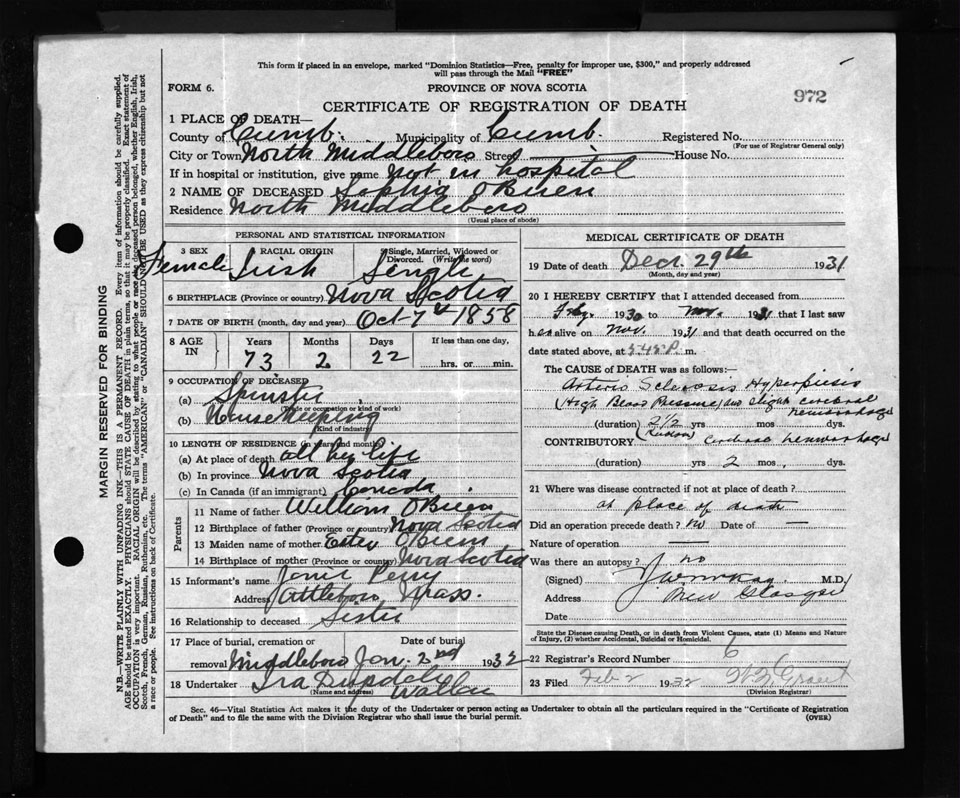 This form if placed in an envelope, marked "Dominion Statistics—Free, penalty for improper use, $300," and properly addressed
will pass through the Mail "FREE"
FORM 6.
PROVINCE OF NOVA SCOTIA
972
CERTIFICATE OF REGISTRATION OF DEATH
1 PLACE OF DEATH—
County of Cumb. Municipality of Cumb. Registered No.
(For use of Registrar General only)
City or Town North Middleboro Street House No.
If in hospital or institution, give name not in hospital
2 NAME OF DECEASED Sophia O'Brien
Residence North Middleboro
(Usual place of abode)
PERSONAL AND STATISTICAL INFORMATION
3 SEX RACIAL ORIGIN 5 Single, Married, Widowed or Divorced. (Write the word)
Female Irish Single
6 BIRTHPLACE (Province or country) Nova Scotia
7 DATE OF BIRTH (month, day and year) Oct 7th 1858
8 AGE IN Years Months Days If less than one day,
73 2 22 hrs. or min.
9 OCCUPATION OF DECEASED
(a) Spinster
(Trade or occupation or kind of work)
(b) House Keeping
(Kind of industry)
10 LENGTH OF RESIDENCE (in years and months)
(a) At place of death all her life
(b) In province Nova Scotia
(c) In Canada (if an immigrant) Canada
Parents
11 Name of father William O'Brien
12 Birthplace of father (Province or country) Nova Scotia
13 Maiden name of mother Ester O'Brien
14 Birthplace of mother (Province or country) Nova Scotia
15 Informant's name Perry
Address Attleboro Mass.
16 Relationship to deceased Sister
17 Place of burial, cremation or removal Date of burial
Middleboro Jan. 2nd 1932
18 Undertaker Ira
(Name and address) Wallace
MEDICAL CERTIFICATE OF DEATH
19 Date of death Dec. 29th 1931
(Month, day and year)
20 I HEREBY CERTIFY that I attended deceased from
1930 to Nov. 1931 that I last saw
her alive on Nov. 1931 and that death occurred on
date stated above, at 5.45 P. m.
The CAUSE of DEATH was as follows:—
Arterio Sclerosis Hyperpiesis
(High Blood Pressure) and slight cerebral
hemorrhage
(duration) 2 1/2 yrs mos. dys.
CONTRIBUTORY cerebral hemorrhage
(duration) yrs 2 mos., dys.
21 Where was disease contracted if not at place of death?
at place of death
Did an operation precede death? no Date of —
Nature of operation —
Was there an autopsy? no
(Signed) M.D.
Address New Glasgow
Date
State the Disease causing Death, or in death from Violent Causes, state (1) Means and Nature
of Injury, (2) whether Accidental, Suicidal or Homicidal.
22 Registrar's Record Number 6
23 Filed Feb 2 1932 Grant
(Division Registrar)
Sec. 46—Vital Statistics Act makes it the duty of the Undertaker or person acting as Undertaker to obtain all the particulars required in the "Certificate of Registration
of Death" and to file the same with the Division Registrar who shall issue the burial permit.
(OVER)
MARGIN RESERVED FOR BINDING
N.B.—WRITE PLAINLY WITH UNFADING INK—THIS IS A PERMANENT RECORD. Every item of information should be carefully supplied.
AGE should be stated EXACTLY. PHYSICIANS should STATE CAUSE OF DEATH in plain terms, so that it may be properly classified. Exact statement of
OCCUPATION is very important. RACIAL ORIGIN will be described by stating to what people or race the deceased person belonged, whether English, Irish,
Scotch, French, German, Russian, Ruthenian, etc. The terms "AMERICAN" or "CANADIAN" SHOULD NOT BE USED as they express citizenship but not
a race or people. See instructions on back of Certificate.